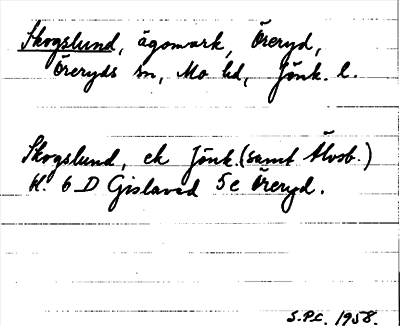 Skogslund, ägomark, Öreryd,
Öreryds sn, Mo hd, Jönk. l.
Skogslund, ek Jönk. (samt Älvsb.)
bl. 6 D Gislaved 5c Öreryd.
S.P.C. 1958.